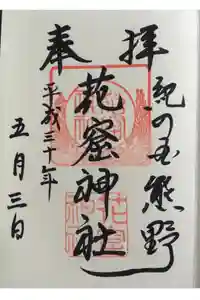 奉拝
紀の国熊野
花窟神社
平成三十年
五月三日